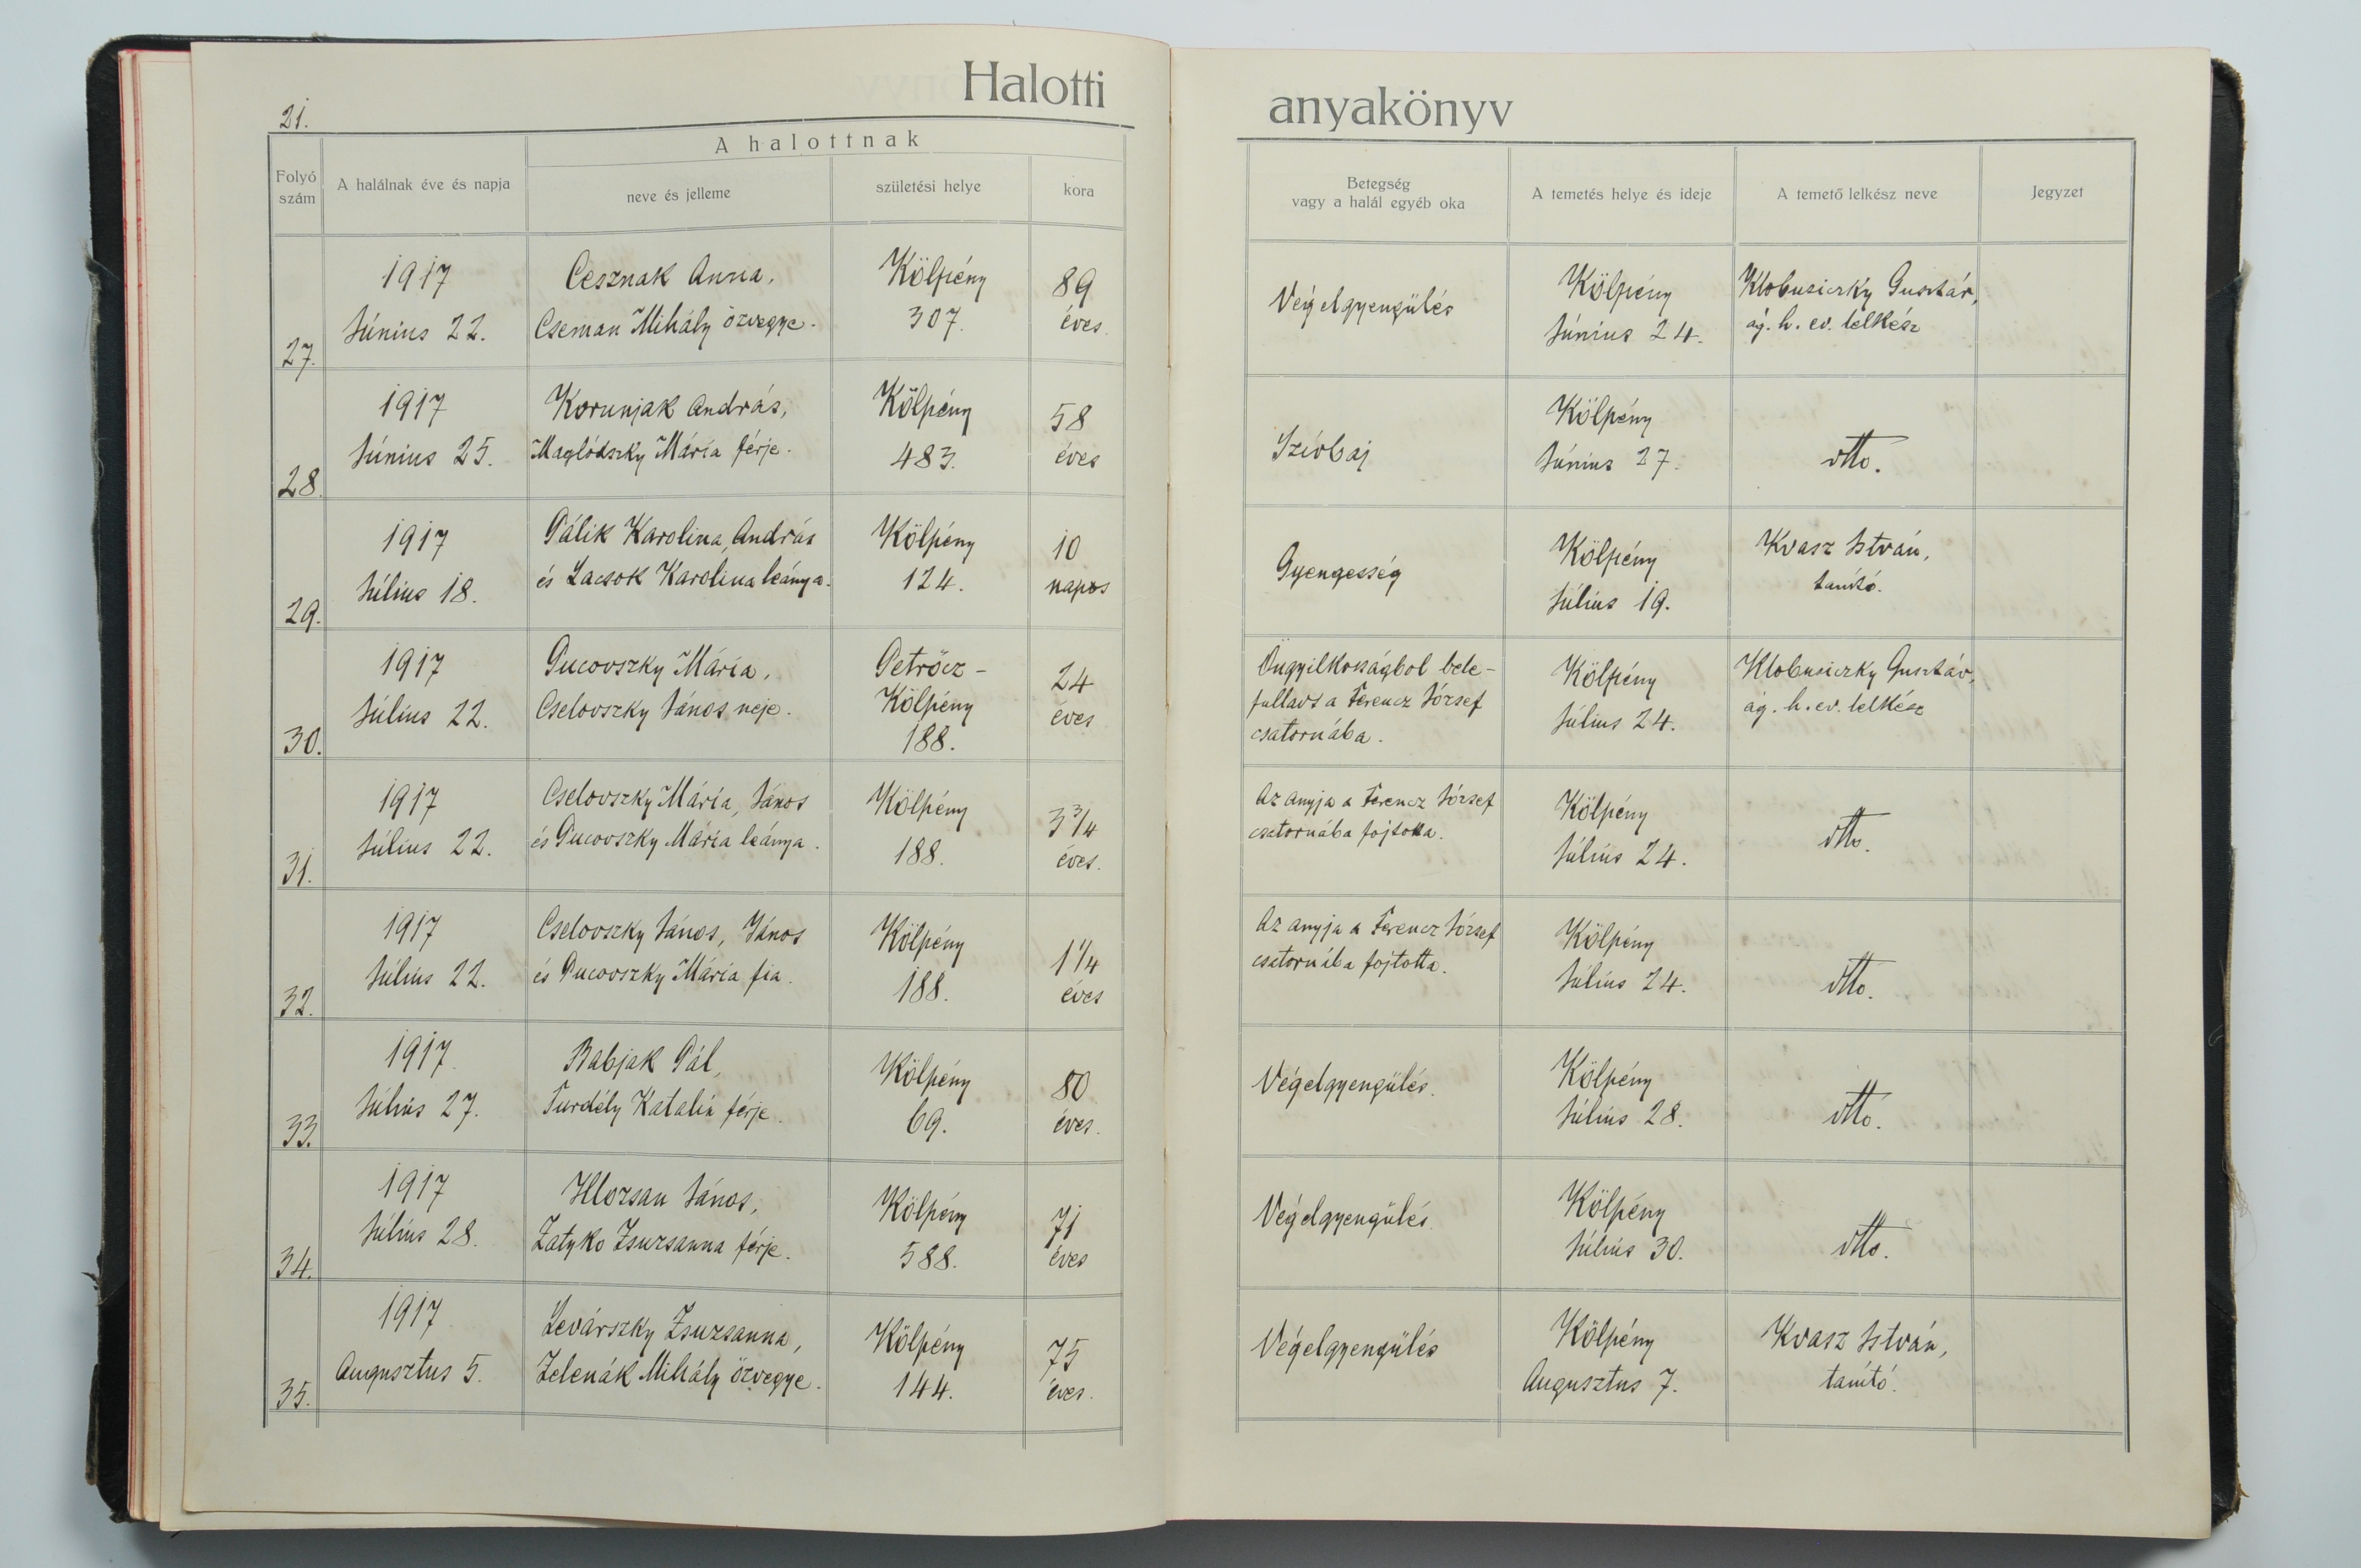 Halotti anyakönyv
21.
Folyó szám
A halálnak éve és napja
A halottnak
neve és jelleme
születési helye
kora
Betegség
vagy a halál egyéb oka
A temetés helye és ideje
A temető lelkész neve
Jegyzet
27.
1917
Június 22.
Cesznak Anna,
Cseman Mihály özvegye.
Kölpény
307.
89
éves.
Végelgyengülés
Kölpény
Június 24.
Klobusiczky Gusztáv,
ág. h. ev. lelkész
28.
1917
Június 25.
Korunjak András,
Maglódszky Mária férje.
Kölpény
483.
58
éves
Szívbaj
Kölpény
Június 27.
dtto.
29.
1917
Július 18.
Pálik Karolina, András
és Lacsok Karolina leánya.
Kölpény
124.
10
napos
Gyengesség
Kölpény
Július 19.
Kvasz István,
tanító.
30.
1917
Július 22.
Pucovszky Mária,
Cselovszky János neje.
Petrőcz -
Kölpény
188.
24
éves
Öngyilkosságbol bele-
fulladt a Ferencz József
csatornába.
Kölpény
Július 24.
Klobusiczky Gusztáv,
ág. h. ev. lelkész
31.
1917
Július 22.
Cselovszky Mária, János
és Pucovszky Mária leánya.
Kölpény
188.
3 3/4
éves.
Az anyja a Ferencz József
csatornába fojtotta.
Kölpény
Július 24.
dtto.
32.
1917
Július 22.
Cselovszky János, János
és Pucovszky Mária fia.
Kölpény
188.
1 1/4
éves
Az anyja a Ferencz József
csatornába fojtotta.
Kölpény
Július 24.
dtto.
33.
1917
Július 27.
Babjak Pál,
Turdély Katalin férje.
Kölpény
69.
80
éves.
Végelgyengülés.
Kölpény
Július 28.
dtto.
34.
1917
Július 28.
Hlozsan János,
Zatyko Zsuzsanna férje.
Kölpény
588.
71
éves
Végelgyengülés.
Kölpény
Július 30.
dtto.
35.
1917
Augusztus 5.
Levárszky Zsuzsanna,
Zelenák Mihály özvegye.
Kölpény
144.
75
éves.
Végelgyengülés
Kölpény
Augusztus 7.
Kvasz István,
tanító.